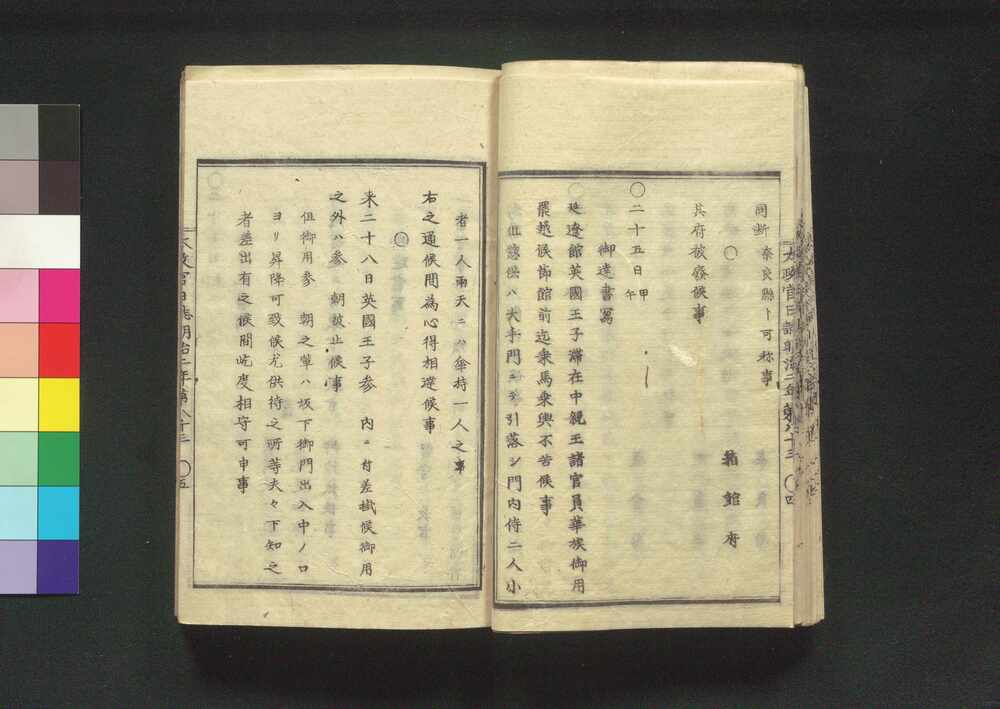 同断 奈良縣ト可称事
〇 箱館府
其府被廢候事
〇二十五日甲午
御達書寫
〇延遼館英國王子滞在中親王諸官員華族御用
罷越候節館前迄乗馬乗輿不苦候事
但諸供ハ大手門ニテ引落シ門内侍二人小
者一人雨天ニハ傘持一人之事
右之通候間為心得相達候事
〇
来二十八日英國王子参 内ニ付差掛候御用
之外ハ参 朝被止候事
但御用参 朝之輩ハ坂下御門出入中ノ口
ヨリ昇降可致候尤供待之所等夫々下知之
者差出有之候間屹度相守可申事
太政官日誌明治二年第八十三 〇四
太政官日誌明治二年第八十三 〇五